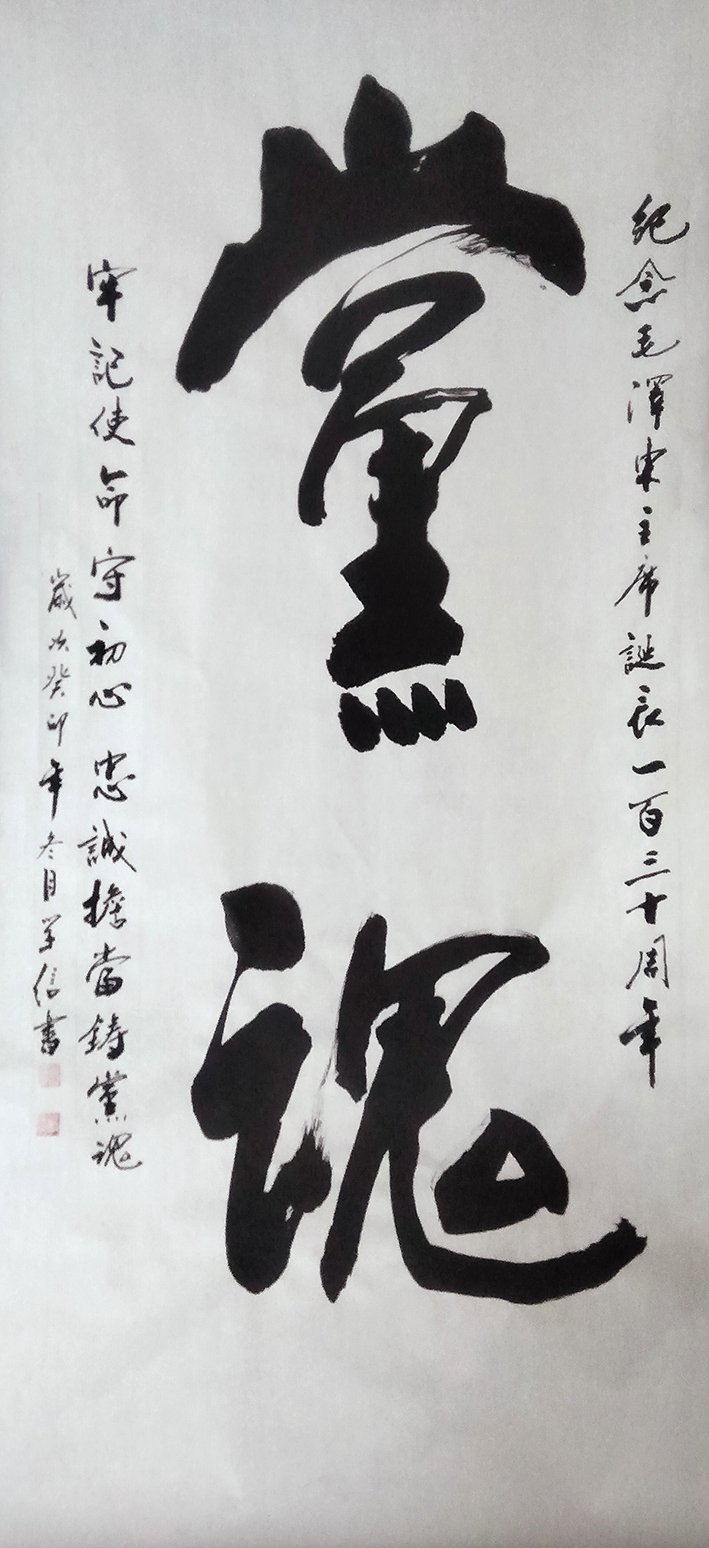 紀念毛澤東主席誕辰一百三十周年
黨魂
牢記使命守初心 忠誠擔當鑄黨魂
歲次癸卯年冬月学信書